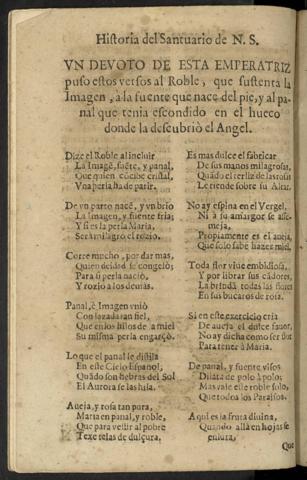 Historia del Santuario de N. S.
VN DEVOTO DE ESTA EMPERATRIZ
puso estos versos al Roble, que sustenta la
Imagen, a la fuente que nace del pie, y al pa-
nal que tenia escondido en el hueco
donde la descubriò el Angel.
Dize el Roble al incluir
La Imagẽ, fuẽte, y panal,
Que quien cõcibe cristal,
Vna perla ha de parir.
De vn parto nacẽ, y vn brio
La Imagen, y fuente fria;
Y si es la perla Maria,
Serà milagro el rozio.
Corre mucho, por dar mas,
Quien deidad se congelò;
Para ti perla naciò,
Y rozio a los demàs.
Panal, è Imagen vniò
Con lazada tan fiel,
Que en los hilos de a miel
Su misma perla engarçò.
Lo que el panal le distila
En este Cielo Español,
Quãdo son hebras del Sol
El Aurora se las hila.
Aueja, y rosa tan pura,
Maria en panal, y roble,
Que para vestir al pobre
Texe telas de dulçura.
Es mas dulce el fabricar
De sus manos milagrosas,
Quãdo el terliz de las rosas
Le tiende sobre su Altar.
No ay espina en el Vergel,
Ni a su amargor se asse-
meja,
Propiamente es el aueja,
Que solo sabe hazer miel.
Toda flor viue embidiosa,
Y por librar sus cãdores,
La brindã todas las flores
En sus bucaros de rosa.
Si en este exercicio cria
De aueja el dulce sabor,
No ay dicha como ser flor
Para tener à Maria.
De panal, y fuente visos
Dilata de polo à polo;
Mas vale este roble solo,
Que todos los Paraisos.
Aqui es la fruta diuina,
Quando allà en hojas se
Que